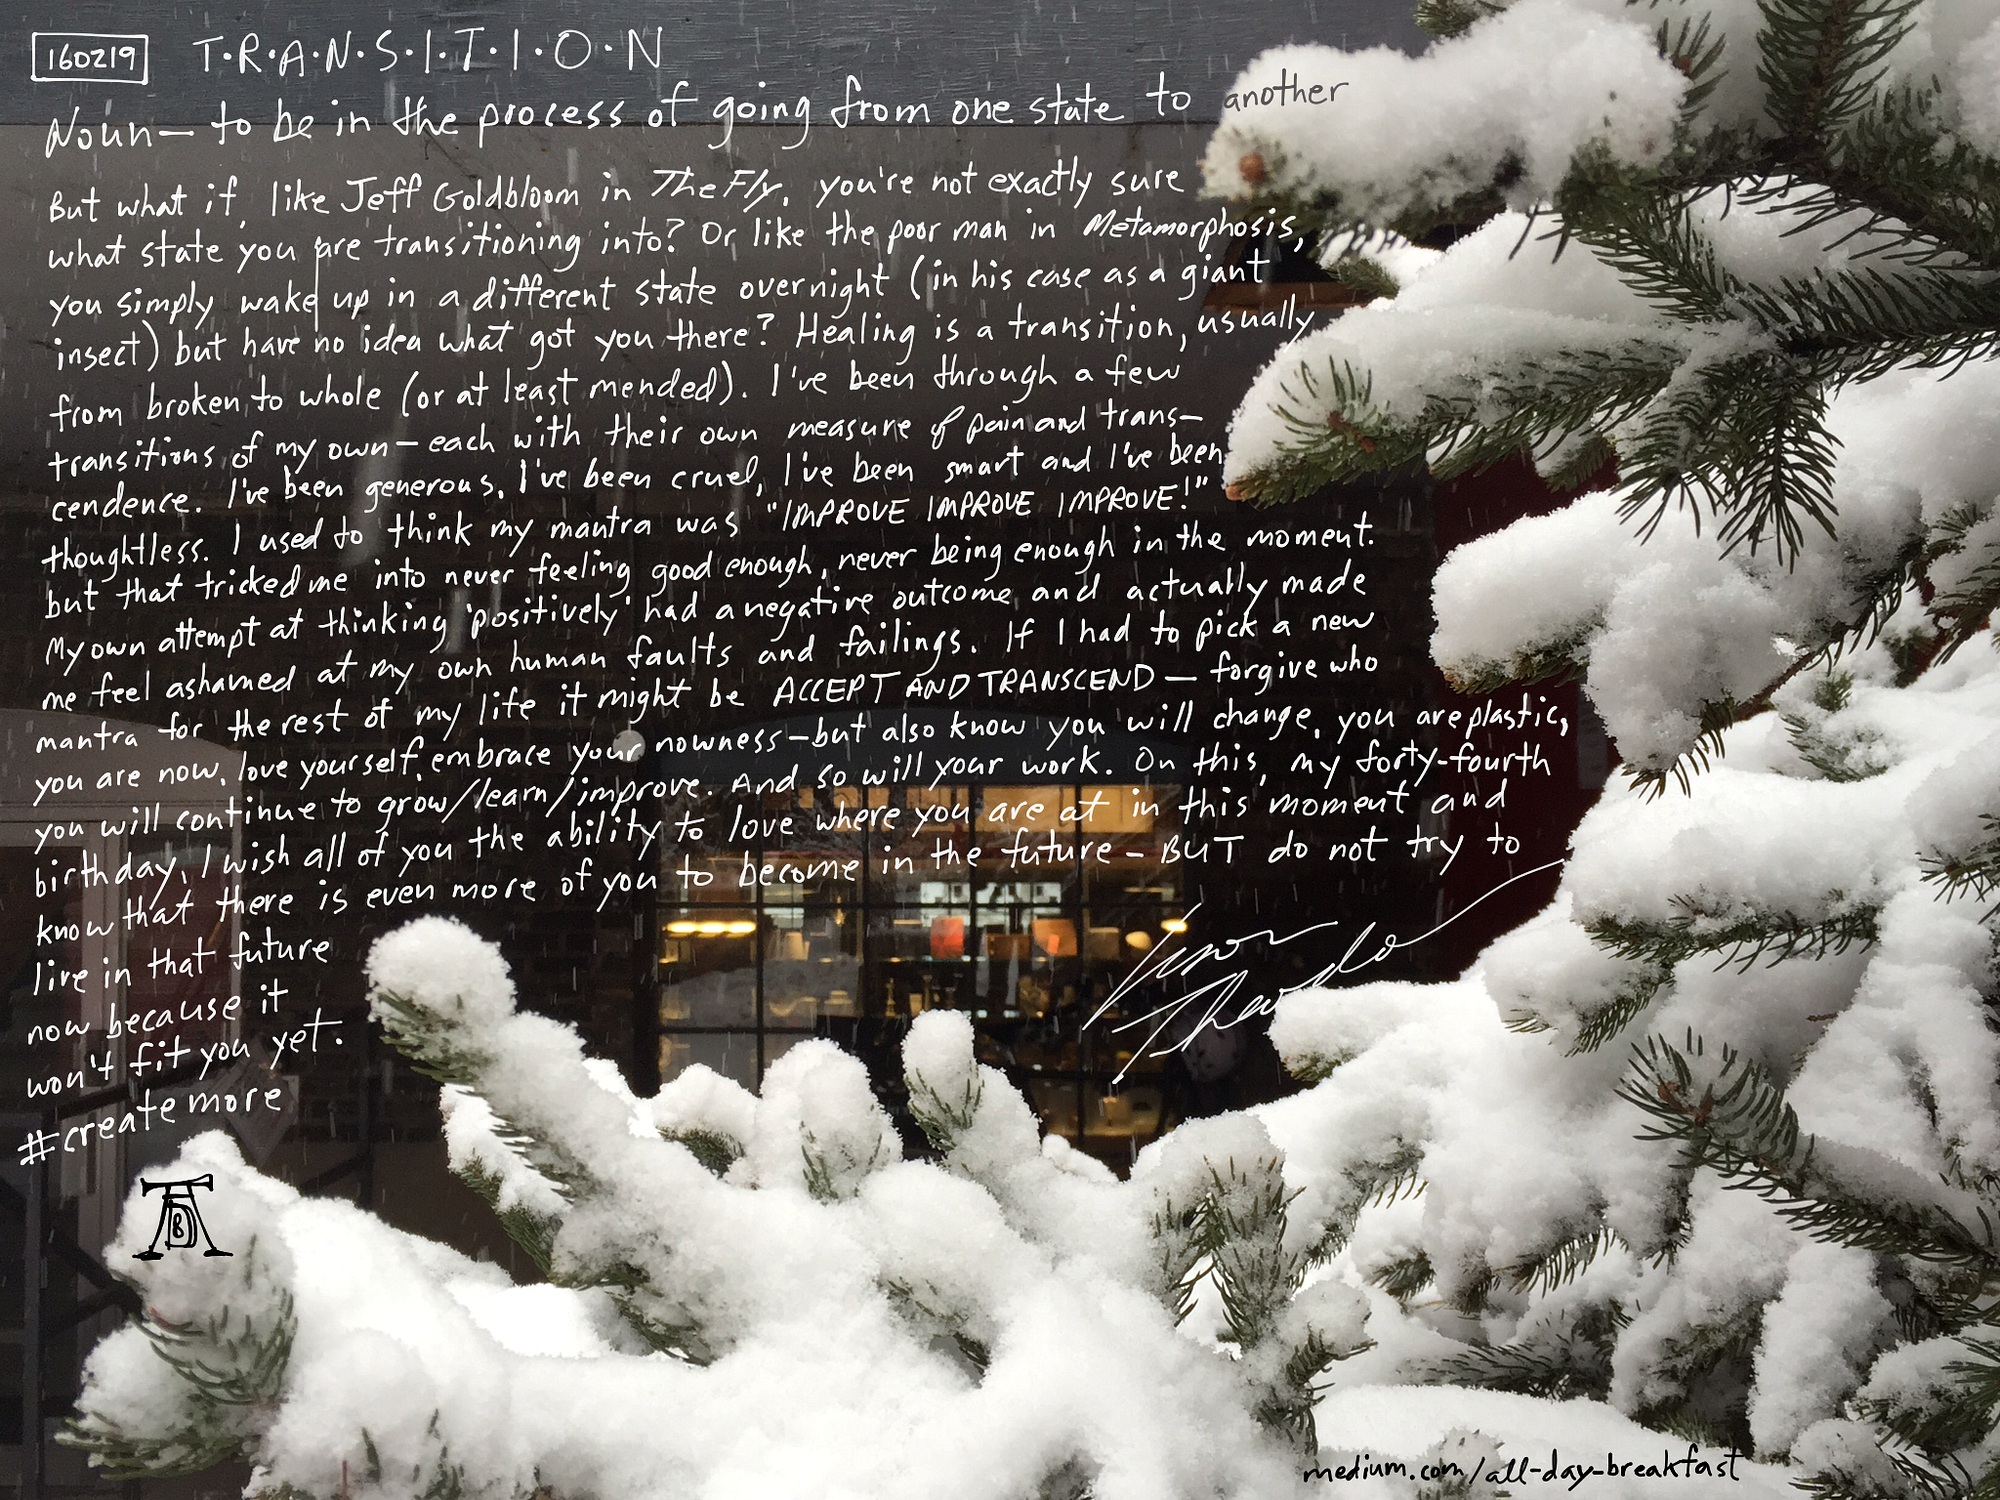 160219 T·R·A·N·S·I·T·I·O·N
Noun— to be in the process of going from one state to another
But what if, like Jeff Goldbloom in The Fly, you're not exactly sure
what state you are transitioning into? Or like the poor man in Metamorphosis,
you simply wake up in a different state overnight (in his case as a giant
insect) but have no idea what got you there? Healing is a transition, usually
from broken to whole (or at least mended). I've been through a few
transitions of my own—each with their own measure of pain and trans-
cendence. I've been generous, I've been cruel, I've been smart and I've been
thoughtless. I used to think my mantra was "IMPROVE IMPROVE IMPROVE!"
but that tricked me into never feeling good enough, never being enough in the moment.
My own attempt at thinking 'positively' had a negative outcome and actually made
me feel ashamed at my own human faults and failings. If I had to pick a new
mantra for the rest of my life it might be ACCEPT AND TRANSCEND — forgive who
you are now, love yourself, embrace your nowness—but also know you will change, you are plastic,
you will continue to grow/learn/improve. And so will your work. On this, my forty-fourth
birthday, I wish all of you the ability to love where you are at in this moment and
know that there is even more of you to become in the future — BUT do not try to
live in that future
now because it
won't fit you yet.
#createmore
medium.com/all-day-breakfast